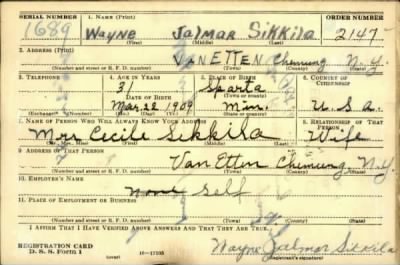 SERIAL NUMBER 1. NAME (Print) ORDER NUMBER
1689 Wayne Jalmar Sikkila 2147
(First) (Middle) (Last)
2. ADDRESS (Print)
VanETTEN Chemung N.Y.
(Number and street or R. F. D. number) (Town) (County) (State)
3. TELEPHONE 4. AGE IN YEARS 5. PLACE OF BIRTH 6. COUNTRY OF CITIZENSHIP
31 Sparta
DATE OF BIRTH
Mar. 22 1909 Min. U.S.A.
(Exchange) (Number) (Mo.) (Day) (Yr.) (State or country)
7. NAME OF PERSON WHO WILL ALWAYS KNOW YOUR ADDRESS 8. RELATIONSHIP OF THAT PERSON
Mrs Cecile Sikkila Wife
(Mr., Mrs., Miss) (First) (Middle) (Last)
9. ADDRESS OF THAT PERSON
Van Etten Chemung N.Y.
(Number and street or R. F. D. number) (Town) (County) (State)
10. EMPLOYER'S NAME
None Self
11. PLACE OF EMPLOYMENT OR BUSINESS
(Number and street or R. F. D. number) (Town) (County) (State)
I AFFIRM THAT I HAVE VERIFIED ABOVE ANSWERS AND THAT THEY ARE TRUE.
REGISTRATION CARD
D. S. S. Form 1 (over) 16—17105
Wayne Jalmar Sikkila
(Registrant's signature)